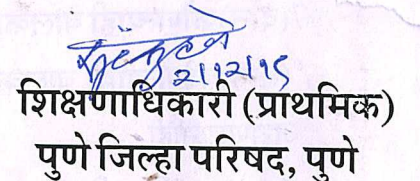 २।१२।१९
शिक्षणाधिकारी (प्राथमिक)
पुणे जिल्हा परिषद, पुणे